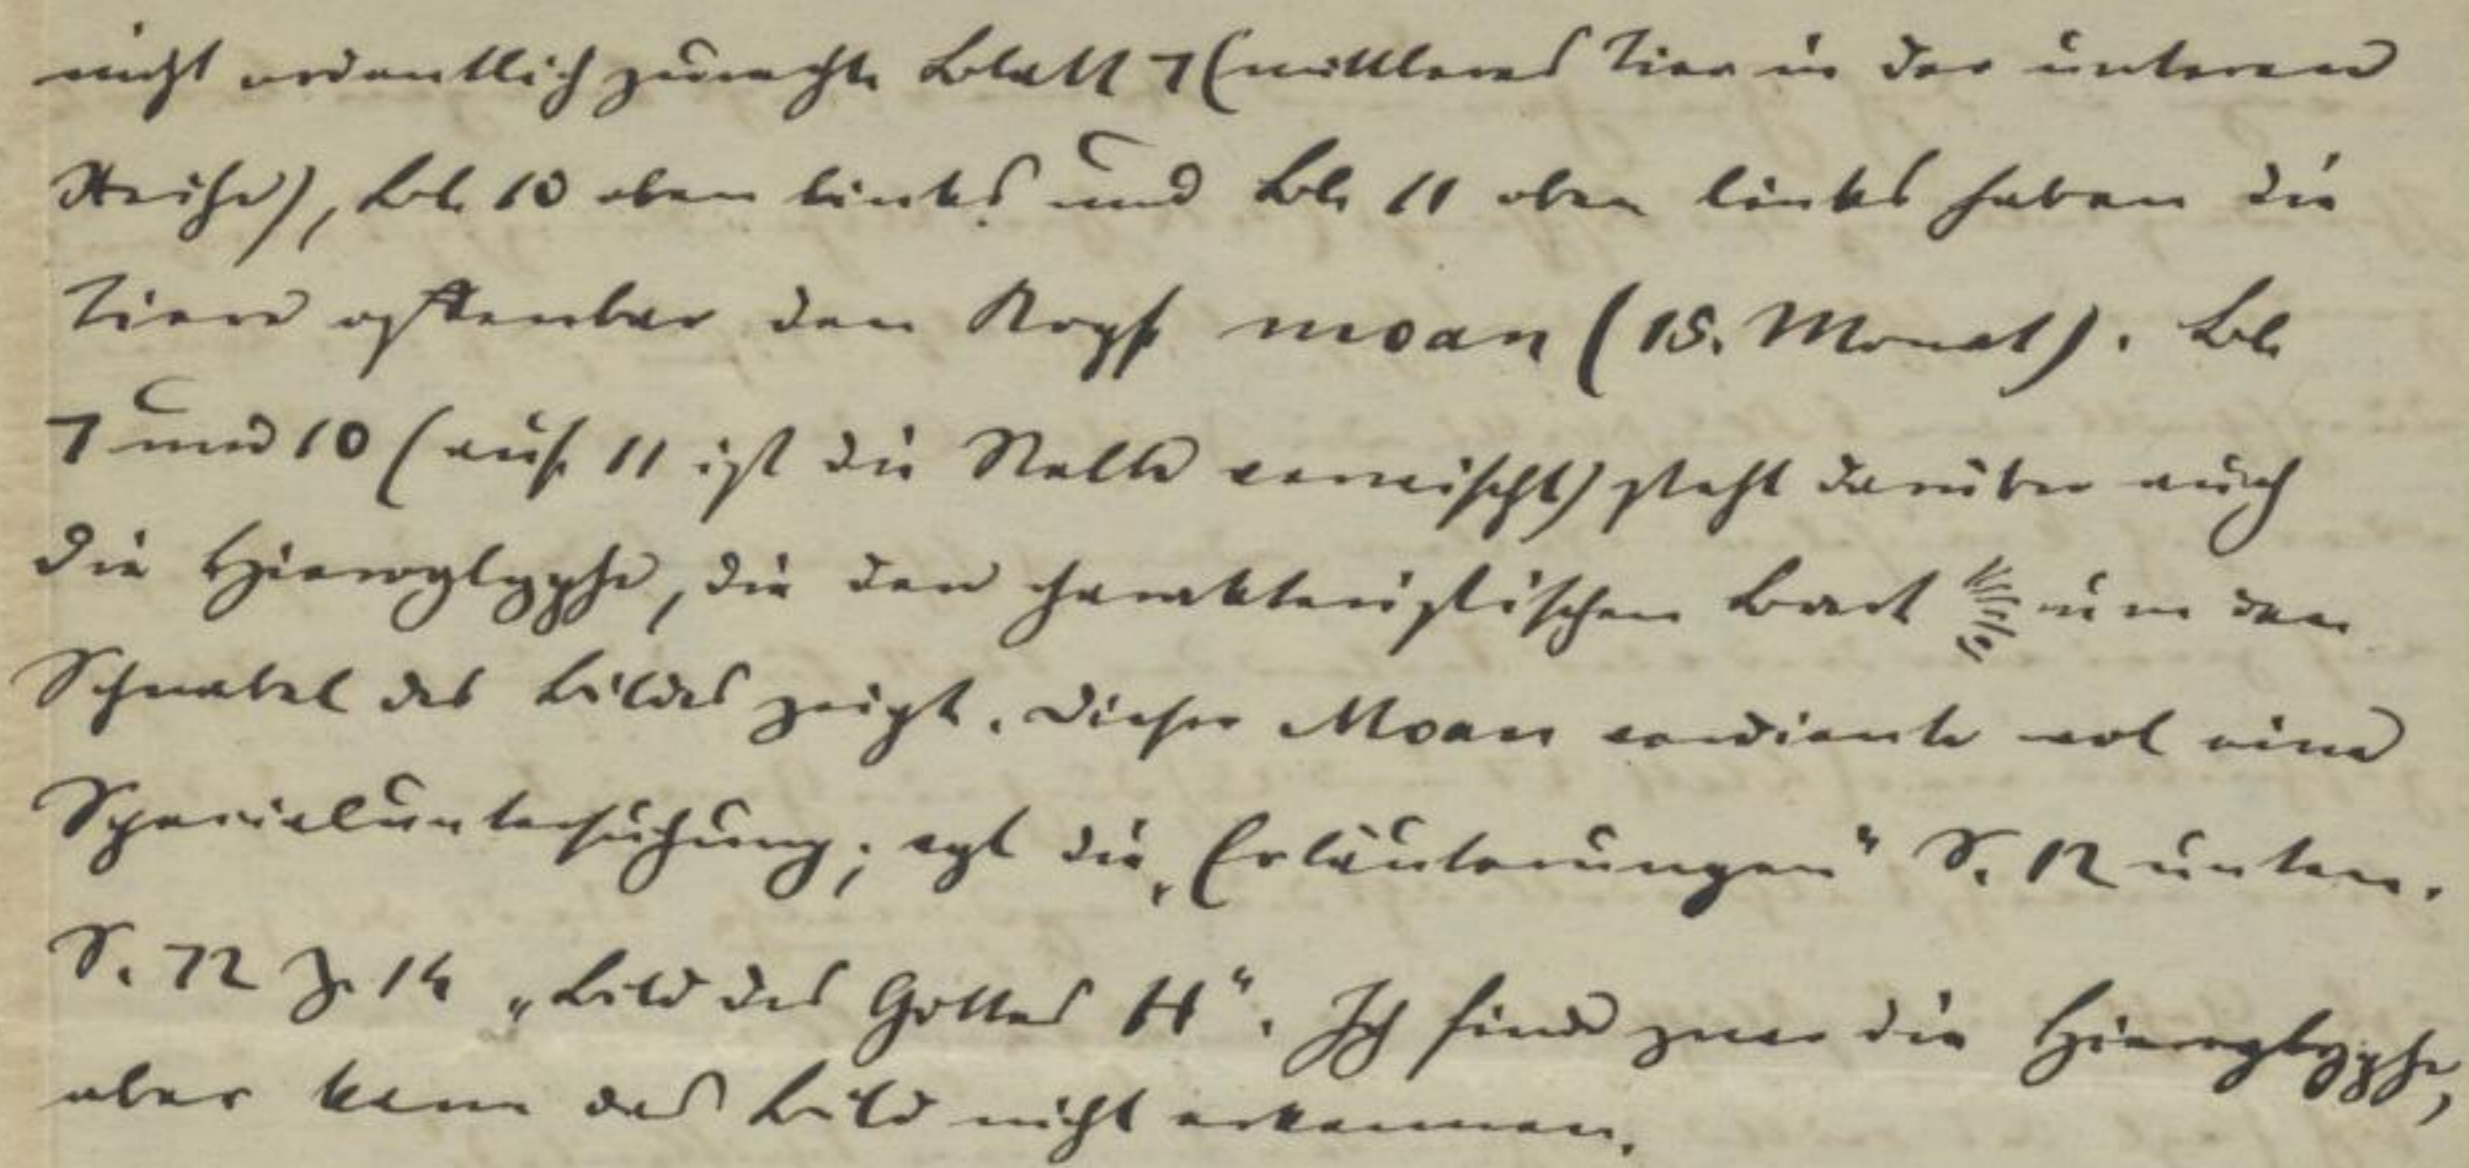 nicht ordentlich zurecht. Blatt 7 (mittleres Tier in der unteren
Reihe), Bl. 10 oben links und Bl. 11 oben links haben die
Tiere offenbar den Kopf moan (15. Monat). Bl.
7 und 10 (auf 11 ist die Stelle verwischt) steht darüber auch
die Hieroglyphe, die den charakteristischen Bart um den
Schnabel des Bildes zeigt. Dieser Moan verdiente wol eine
Specialuntersuchung; vgl die „Erläuterungen“ S. 12 unten.
S. 72 Z. 14 „Bild des Gottes H“. Ich finde zwar die Hieroglyphe,
aber kann das Bild nicht erkennen.